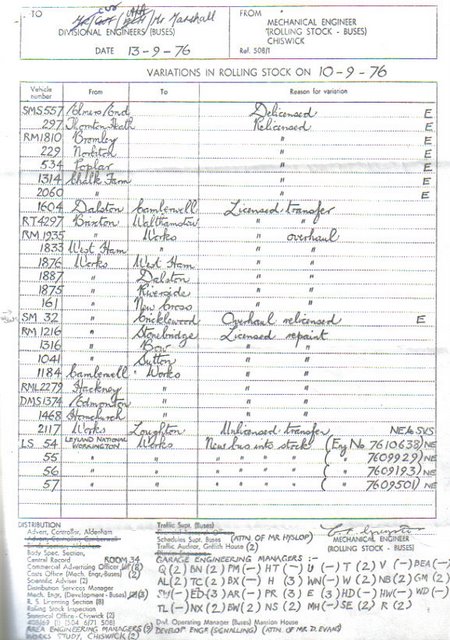 TO Mr Marshall
DIVISIONAL ENGINEERS (BUSES)
DATE 13-9-76
FROM
MECHANICAL ENGINEER
(ROLLING STOCK - BUSES)
CHISWICK
Ref. 508/1
VARIATIONS IN ROLLING STOCK ON 10-9-76
Vehicle number From To Reason for variation
SMS 557 Elmers End Delicensed E
297 Thornton Heath Relicensed E
RM 1810 Bromley " E
229 Norbiton " E
534 Poplar " E
1314 Chalk Farm " E
2060 " " E
1604 Dalston Camberwell Licensed transfer
RT 4297 Brixton Walthamstow " "
RM 1935 " Works " overhaul
1833 West Ham " " "
1876 Works West Ham " "
1887 " Dalston " "
1875 " Riverside " "
161 " New Cross " "
SM 32 " Cricklewood Overhaul relicensed E
RM 1216 " Stonebridge Licensed repaint
1316 " Bow " "
1041 " Sutton " "
1184 Camberwell Works " "
RML 2279 Hackney " " "
DMS 1374 Edmonton " " "
1468 Hornchurch " " "
2117 Works Loughton Unlicensed transfer NE A6 SVS
LS 54 LEYLAND NATIONAL WORKINGTON Works New bus into stock (Eng No 7610633) NE
55 " " " " " " ( " 7609929) NE
56 " " " " " " ( " 7609193) NE
57 " " " " " " ( " 7609501) NE
DISTRIBUTION
Advert. Controller, Aldenham
Body Spec. Section,
Central Record ROOM 34
Commercial Advertising Officer (8)
Costs Officer (Mech. Engr-Buses) (2)
Scientific Adviser (2)
Distribution Services Manager
Mech. Engr. (Development - Buses) (3)
R. S. Licensing Section (8)
Rolling Stock Inspection
Statistical Officer - Chiswick (2)
AREA ENGINEERING MANAGERS (9)
WORKS STUDY, CHISWICK (2)
Traffic Supt. (Buses)
Schedules Supt. (Buses) (ATTN OF MR HYSLOP)
Traffic Auditor, Griffith House (2)
MECHANICAL ENGINEER
(ROLLING STOCK - BUSES)
GARAGE ENGINEERING MANAGERS :-
Q (2) BN (3) TM (-) HT (-) U (-) T (2) V (-) BEA (-)
AL (2) TC (2) BX (-) H (3) WN (-) W (2) NB (2) GM (2)
SW (-) ED (3) AR (-) PR (3) E (3) HD (-) HW (-) WD (-)
TL (-) NX (2) BW (2) NS (2) MH (-) SE (2) R (2)
Divl. Operating Manager (Buses)
DEVELOPT ENGR (SIGNALLING) (ATTN OF MR D. EVANS)